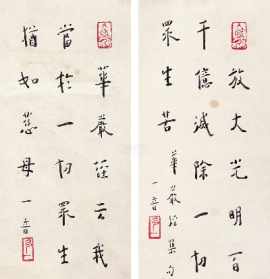 放大光明百
千億滅除一切
眾生苦
華嚴經集句
一音
華嚴經云我
當於一切眾生
猶如慈母
一音